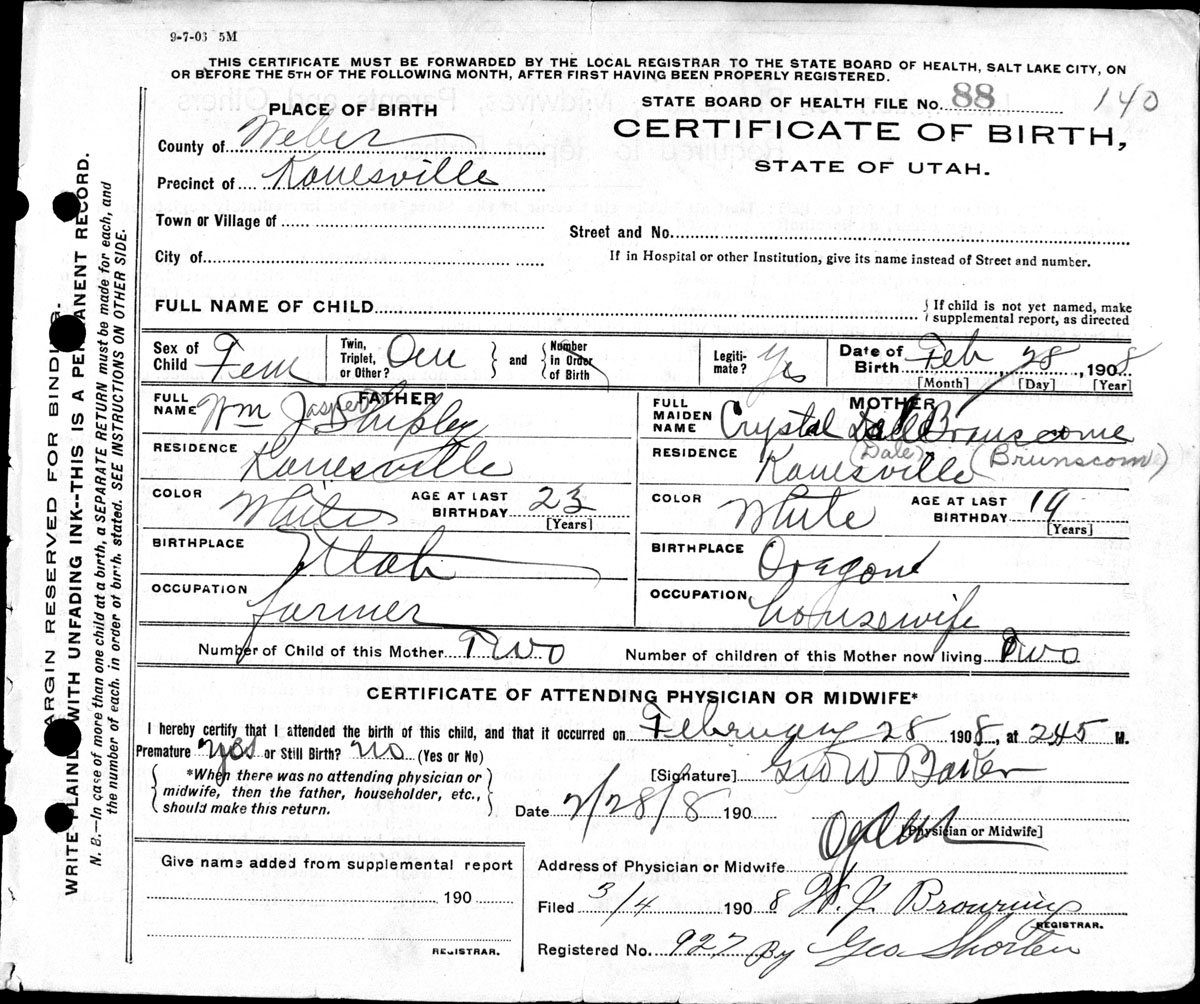 9-7-03 5M
THIS CERTIFICATE MUST BE FORWARDED BY THE LOCAL REGISTRAR TO THE STATE BOARD OF HEALTH, SALT LAKE CITY, ON
OR BEFORE THE 5TH OF THE FOLLOWING MONTH, AFTER FIRST HAVING BEEN PROPERLY REGISTERED.
STATE BOARD OF HEALTH FILE No. 88 140
PLACE OF BIRTH
CERTIFICATE OF BIRTH,
STATE OF UTAH.
County of Weber
Precinct of Kanesville
Town or Village of
Street and No.
City of
If in Hospital or other Institution, give its name instead of Street and number.
FULL NAME OF CHILD { If child is not yet named, make
supplemental report, as directed
Sex of Child Fem Twin, Triplet, or Other? One } and { Number in Order of Birth Legiti-mate? Yes Date of Birth Feb 28 1908
[Month] [Day] [Year]
FATHER MOTHER
FULL NAME Wm J. Shipley FULL MAIDEN NAME Crystal Dale Branscome
Jasper (Dale) (Brunscome)
RESIDENCE Kanesville RESIDENCE Kanesville
COLOR White AGE AT LAST BIRTHDAY 23 [Years] COLOR White AGE AT LAST BIRTHDAY 19 [Years]
BIRTHPLACE Utah BIRTHPLACE Oregon
OCCUPATION farmer OCCUPATION housewife
Number of Child of this Mother Two Number of children of this Mother now living Two
CERTIFICATE OF ATTENDING PHYSICIAN OR MIDWIFE*
I hereby certify that I attended the birth of this child, and that it occurred on February 28 1908, at 245 M.
Premature yes or Still Birth? no (Yes or No)
{ *When there was no attending physician or
midwife, then the father, householder, etc.,
should make this return. }
[Signature] Geo W Baker
Date 2/28/8 190
[Physician or Midwife]
Give name added from supplemental report
Address of Physician or Midwife Ogden
190
Filed 3/4 1908 W. J. Browning
REGISTRAR.
REGISTRAR.
Registered No. 927 By Geo Shorten
ARGIN RESERVED FOR BINDING.
WRITE PLAINLY WITH UNFADING INK--THIS IS A PERMANENT RECORD.
N. B.—In case of more than one child at a birth, a SEPARATE RETURN must be made for each, and
the number of each. in order of birth. stated. SEE INSTRUCTIONS ON OTHER SIDE.